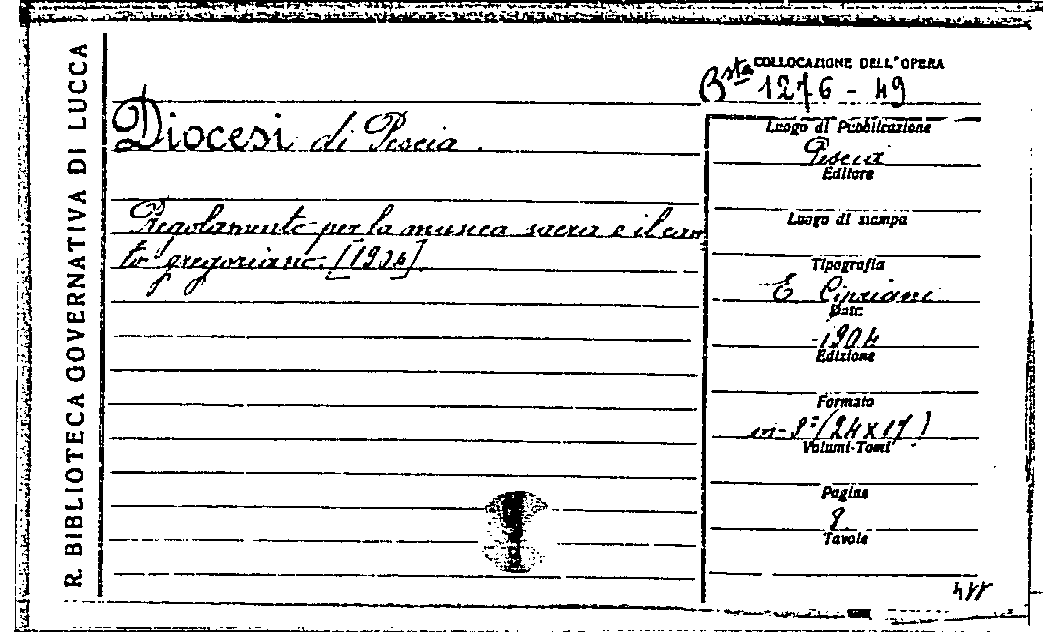 R. BIBLIOTECA GOVERNATIVA DI LUCCA
COLLOCAZIONE DELL'OPERA
Bsta 1276 - 49
Diocesi di Pescia.
Regolamento per la musica sacra e il can
to gregoriano. [1904]
Luogo di Pubblicazione
Pescia
Editore
Luogo di stampa
Tipografia
E. Cipriani
Data
1904
Edizione
Formato
in-8° (24x17)
Volumi-Tomi
Pagine
8
Tavole